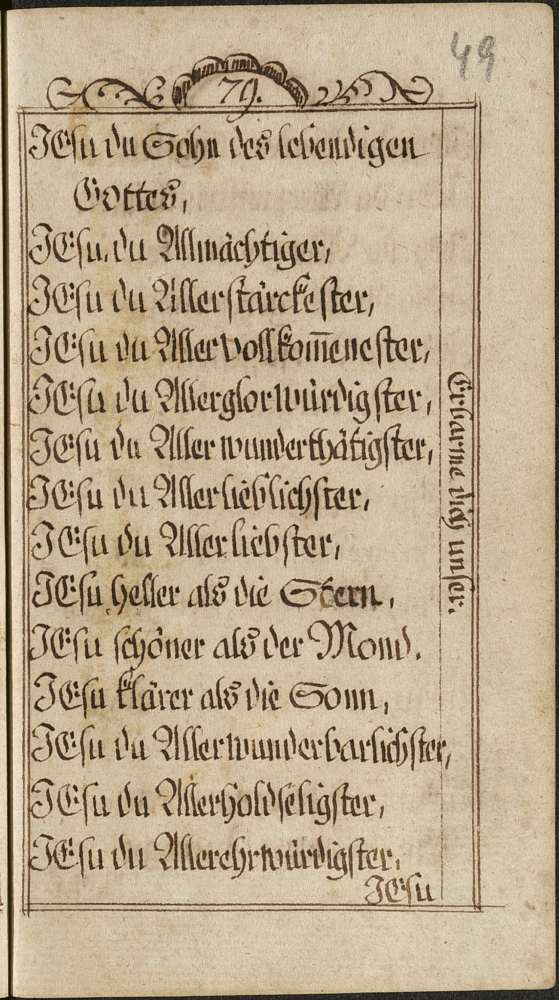 49
79.
JESu du Sohn des lebendigen
Gottes,
JESu, du Allmächtiger,
JESu du Allerstärckester,
JESu du Allervollkom̅enester,
JESu du Allerglorwürdigster,
JESu du Allerwunderthätigster,
JESu du Allerlieblichster,
JESu du Allerliebster,
JESu heller als die Stern,
JESu schöner als der Mond.
JESu klärer als die Sonn,
JESu du Allerwunderbarlichster,
JESu du Allerholdseligster,
JESu du Allerehrwürdigster,
Erbarme dich unser.
JESu